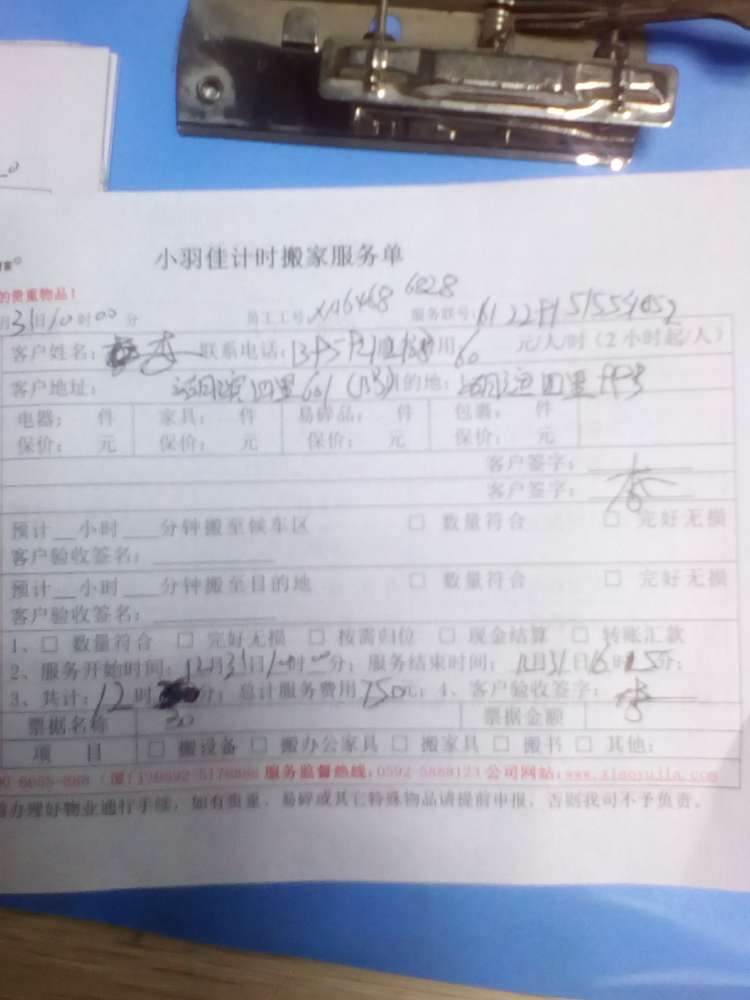 小羽佳计时搬家服务单
的贵重物品!
月31日10时00分 员工工号: XM6468 6828 服务联号:
客户姓名: 李 联系电话: 用60 元/人/时(2小时起/人)
客户地址: 四里601 的地: 四里
电器: 件 家具: 件 易碎品: 件 包裹: 件
保价: 元 保价: 元 保价: 元 保价: 元
客户签字:
客户签字: 李
预计__小时___分钟搬至候车区 □ 数量符合 □ 完好无损
客户验收签名:
预计__小时___分钟搬至目的地 □ 数量符合 □ 完好无损
客户验收签名:
1、□ 数量符合 □ 完好无损 □ 按需归位 □ 现金结算 □ 转账汇款
2、服务开始时间: 12月31日10时00分; 服务结束时间: 12月31日16时15分;
3、共计: 12时30分; 总计服务费用750元; 4、客户验收签字: 李
票据名称 票据金额
项 目 □ 搬设备 □ 搬办公家具 □ 搬家具 □ 搬书 □ 其他:
服务监督热线:0592-5888123 公司网站:www.xiaoyujia.com
办理好物业通行手续, 如有贵重、易碎或其它特殊物品请提前申报, 否则我司不予负责。